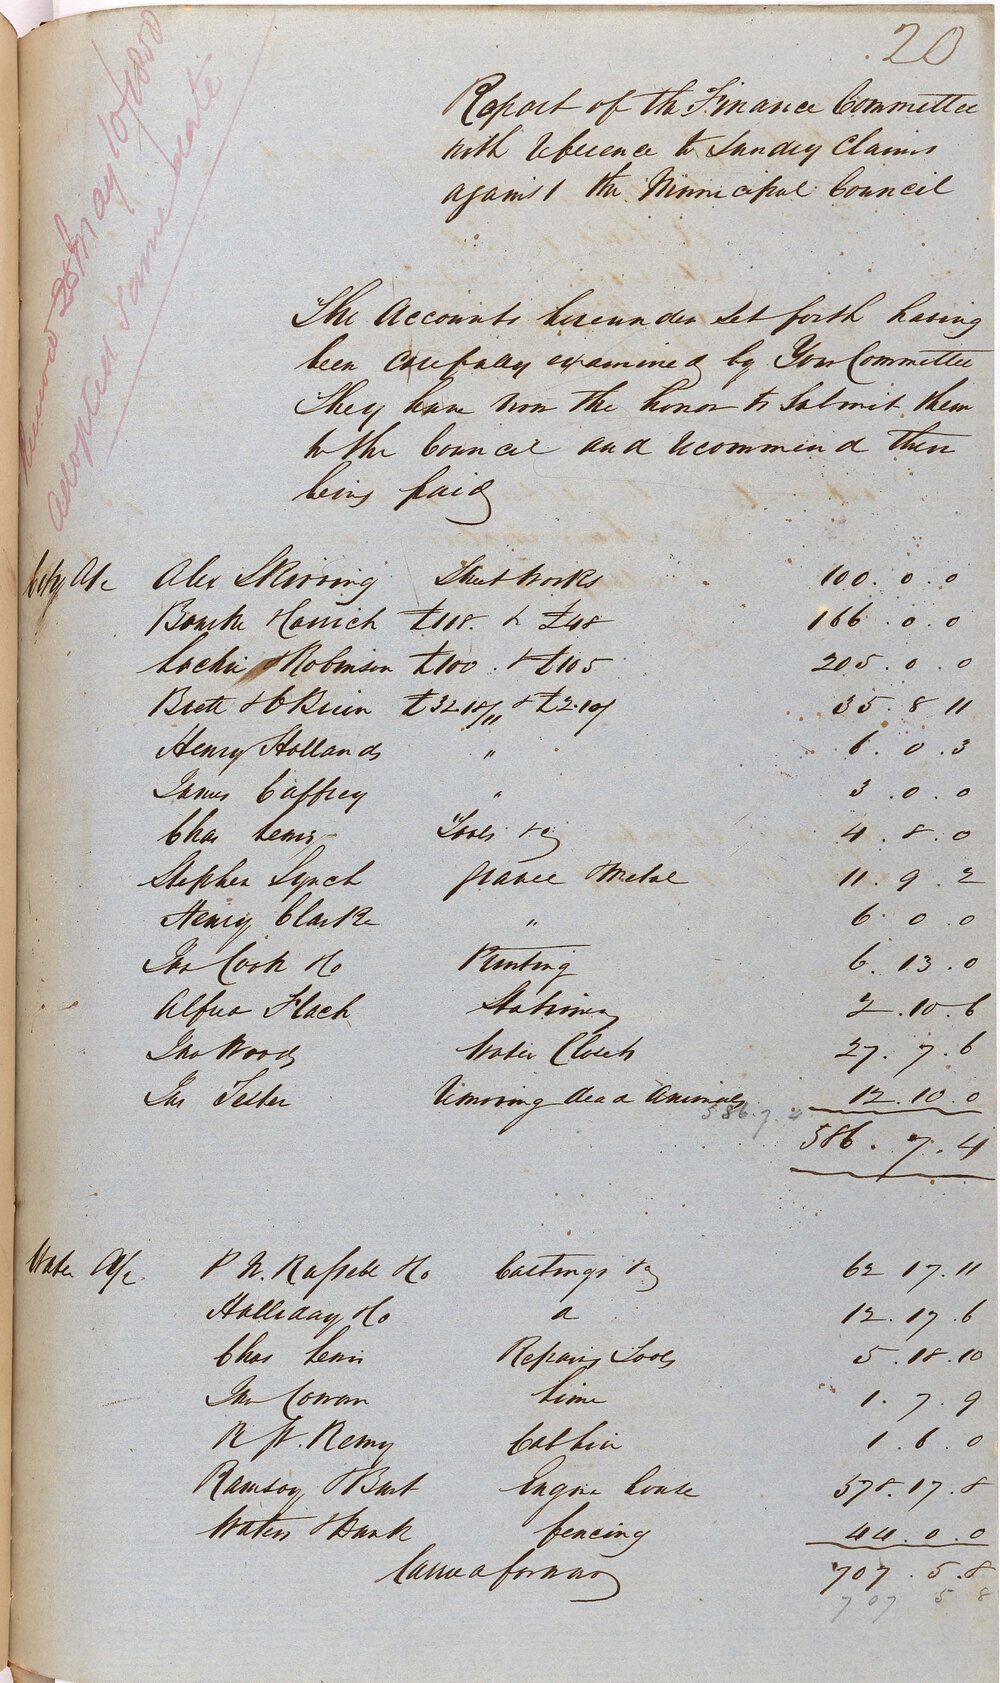 20
Report of the Finance Committee
with reference to Sundry Claims
against the Municipal Council
25th May 10/1858
Adopted same date
The Accounts hereunder set forth having
been carefully examined by Your Committee
They have now the honor to Submit them
to the Council and recommend their
being paid
City A/c Alex Skirving Street Works 100. 0. 0
Bourke £118. & £48 166. 0. 0
& Robinson £100. & £105 205. 0. 0
Brett & O'Brien £32.18/11 & £2.10/ 35. 8 11
Henry Hollands " 6. 0. 3
James Caffrey " 3. 0. 0
Chas Lewis Tools &c 4. 8. 0
Stephen Lynch Gravel & Metal 11. 9. 2
Henry Clarke " 6. 0. 0
Jas Cook & Co Printing 6. 13. 0
Alfred Flach Stationery 2. 10. 6
Jno Woods Water Closets 27. 7. 6
Jas Tester Removing dead animals 12. 10. 0
586. 7. 4
586. 7. 4
Water A/c P. N. Russell & Co Castings &c 62 17. 11
Halliday & Co do 12. 17. 6
Chas Lewis Repairs Tools 5. 18. 10
Jno Cowan Lime 1. 7. 9
R. H. Remy 1. 6. 0
Ramsay & Burt Engine house 578. 17. 8
Waters & Hank fencing 44. 0. 0
Carried forward 707. 5. 8
707 5 8